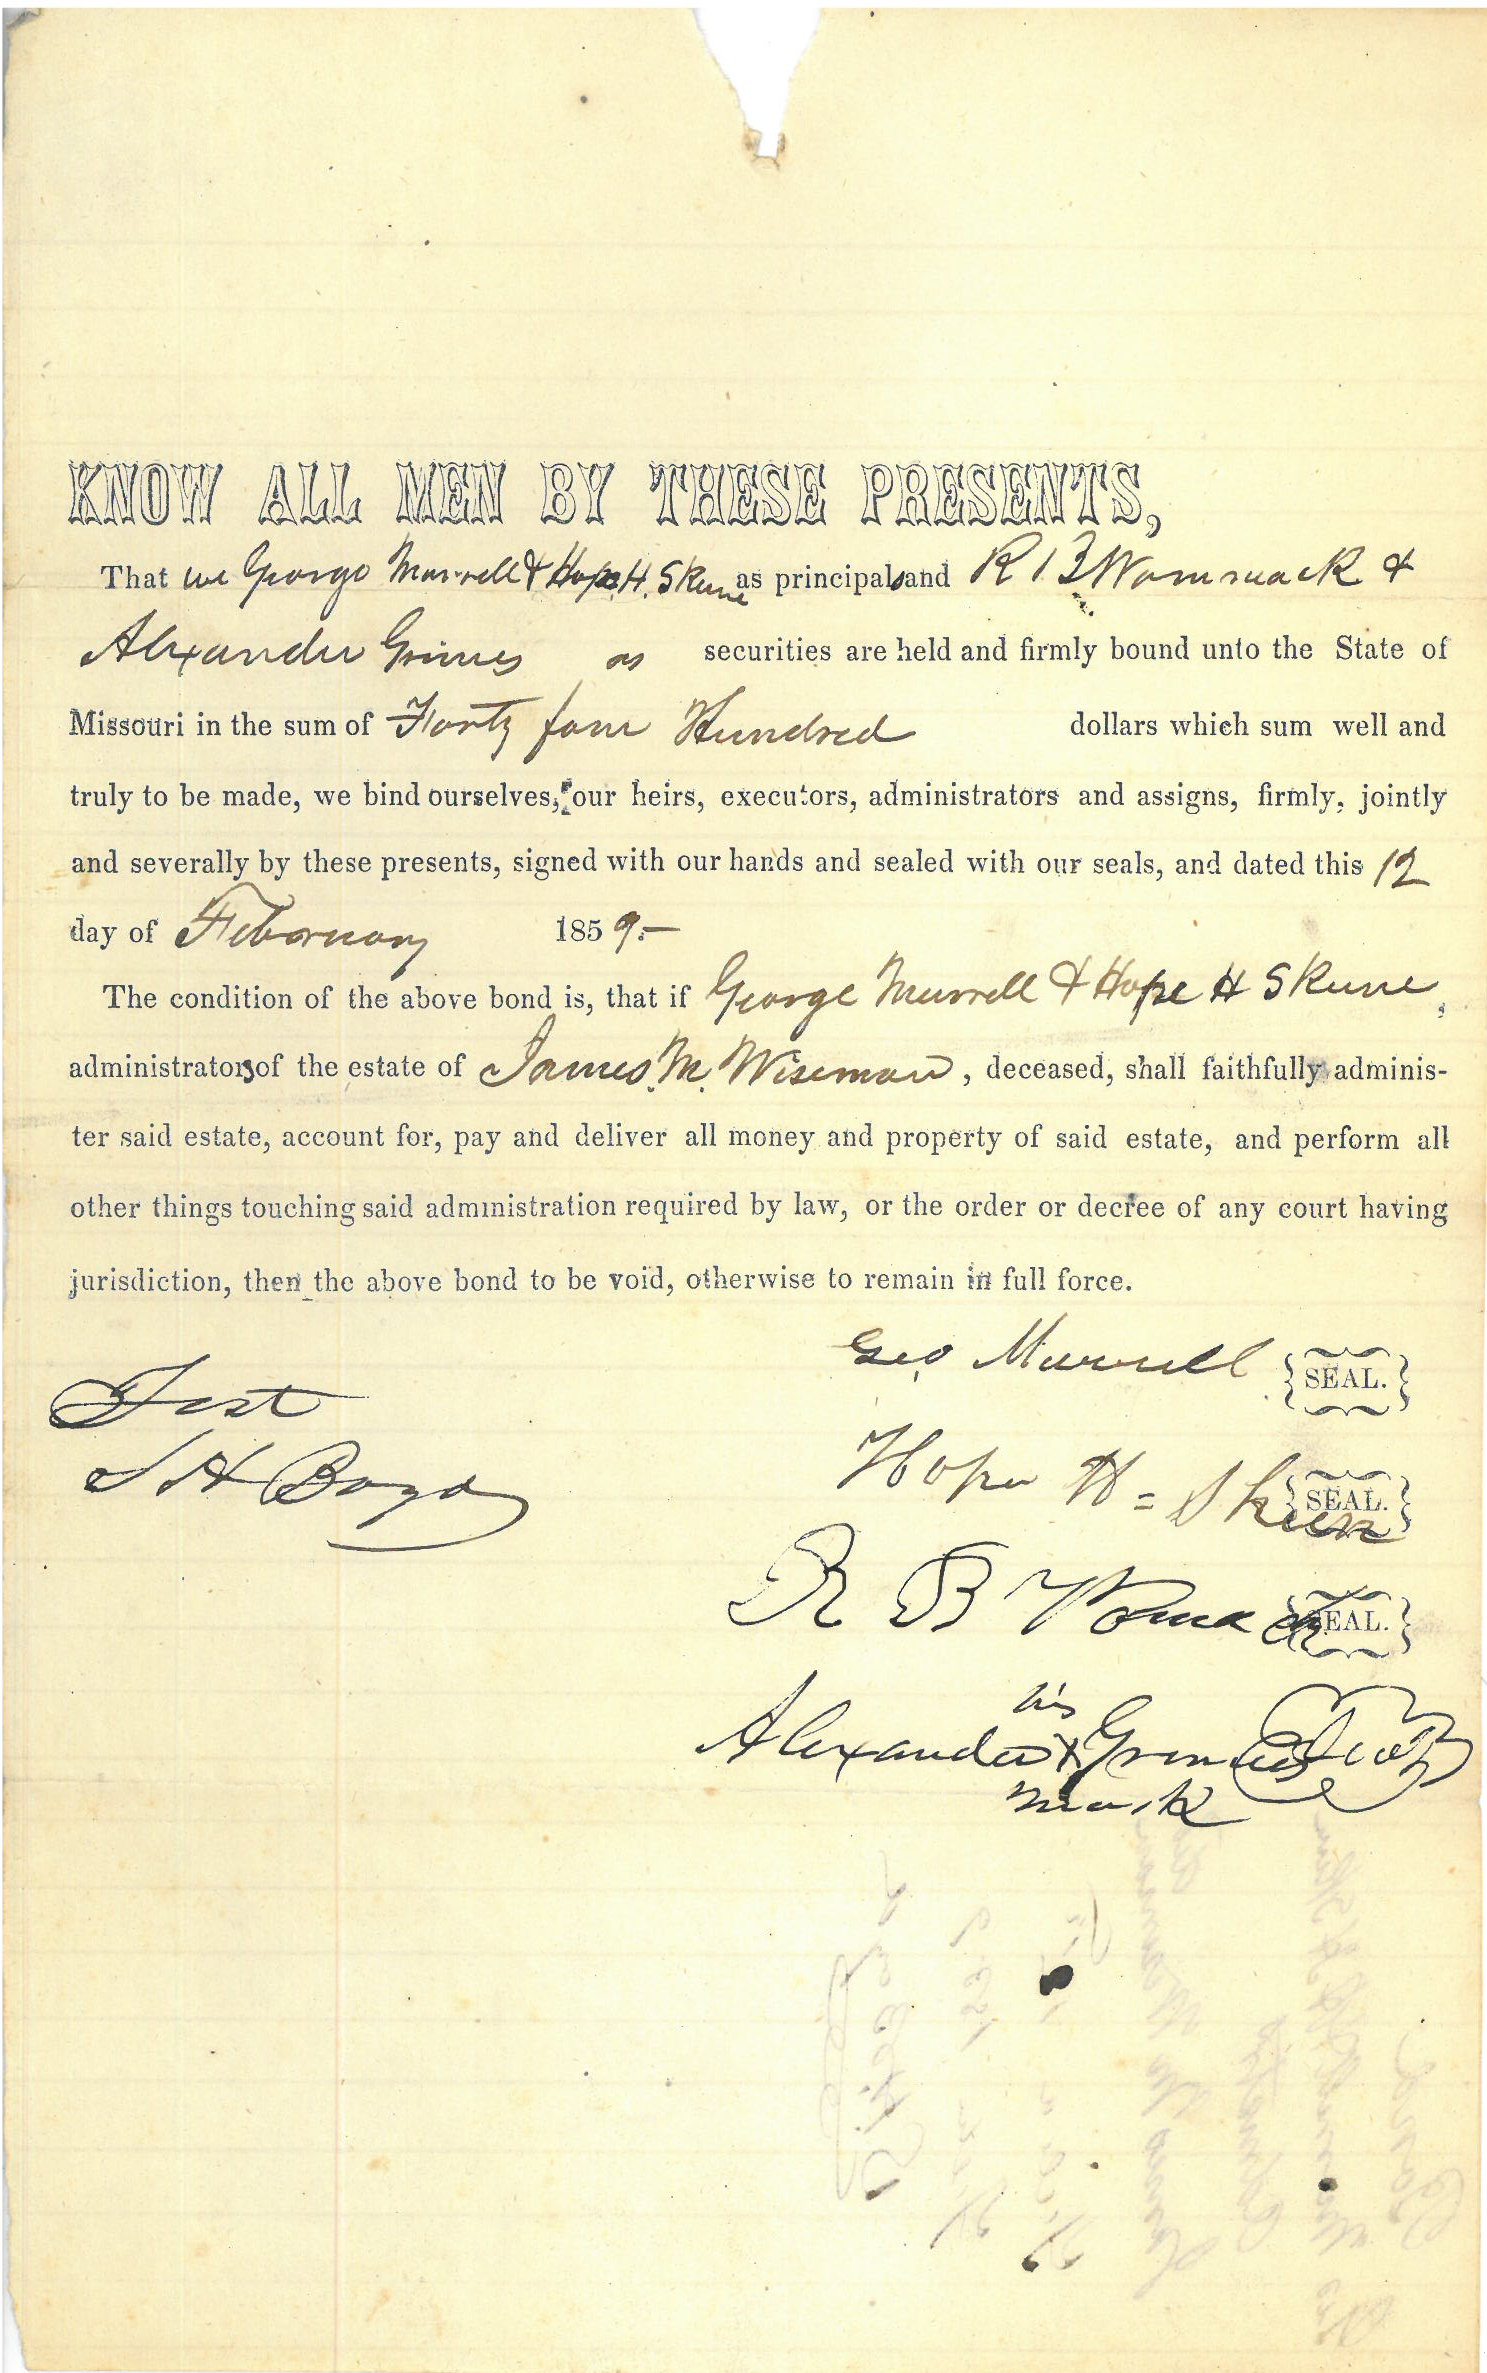 KNOW ALL MEN BY THESE PRESENTS,
That we George Murrell & Hope H. Skene as principals and R B Wommack &
Alexander Grimes as securities are held and firmly bound unto the State of
Missouri in the sum of Forty four Hundred dollars which sum well and
truly to be made, we bind ourselves, our heirs, executors, administrators and assigns, firmly, jointly
and severally by these presents, signed with our hands and sealed with our seals, and dated this 12
day of February 1859.—
The condition of the above bond is, that if George Murrell & Hope H Skene,
administrators of the estate of James M. Wiseman, deceased, shall faithfully adminis-
ter said estate, account for, pay and deliver all money and property of said estate, and perform all
other things touching said administration required by law, or the order or decree of any court having
jurisdiction, then the above bond to be void, otherwise to remain in full force.
Geo Murrell SEAL.
Test
Hope H = Skeen SEAL.
S H Boyd
R B Womack SEAL.
his
Alexander X Grimes Seal
mark